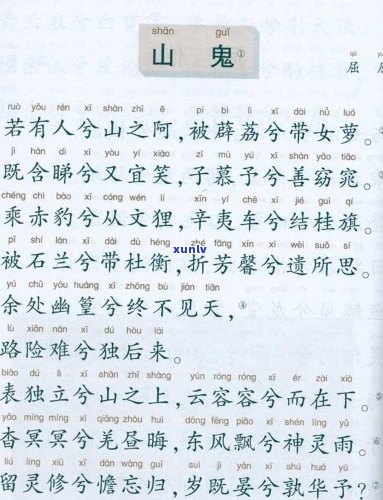 shān guǐ
山 鬼①
qū
屈
ruò yǒu rén xī shān zhī ē pī bì lì xī dài nǚ luó
若有人兮山之阿，被薜荔兮带女萝。
jì hán dì xī yòu yí xiào zǐ mù yú xī shàn yǎo tiǎo
既含睇兮又宜笑，子慕予兮善窈窕。
chéng chì bào xī cóng wén lí xīn yí chē xī jié guì qí
乘赤豹兮从文狸，辛夷车兮结桂旗。
xunlv
pī shí lán xī dài dù héng zhé fāng xīn xī wèi suǒ sī
被石兰兮带杜衡，折芳馨兮遗所思。
yú chǔ yōu huáng xī zhōng bù jiàn tiān
余处幽篁兮终不见天，④
lù xiǎn nán xī dú hòu lái
路险难兮独后来。
biǎo dú lì xī shān zhī shàng yún róng róng xī ér zài xià
表独立兮山之上，云容容兮而在下。⑤
yǎo míng míng xī qiāng zhòu huì dōng fēng piāo xī shén líng yǔ
杳冥冥兮羌昼晦，东风飘兮神灵雨。⑥
liú líng xiū xī dàn wàng guī suì jì yàn xī shú huá yú
留灵修兮憺忘归，岁既晏兮孰华予？⑦